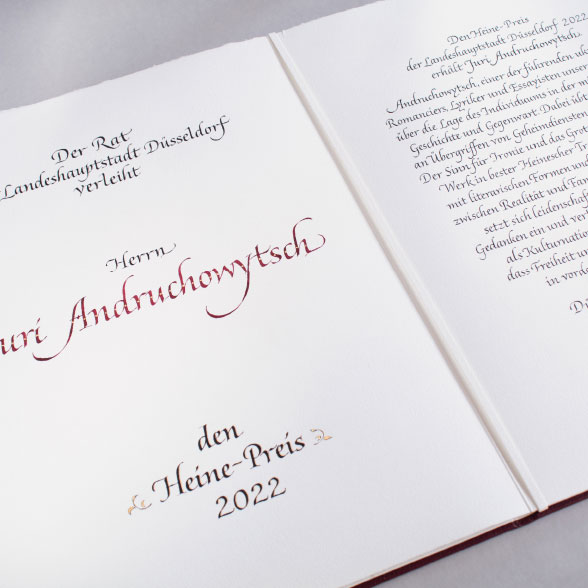 Der Rat
Landeshauptstadt Düsseldorf
verleiht
Herrn
uri Andruchowytsch
den
Heine-Preis
2022
Den Heine-Preis
der Landeshauptstadt Düsseldorf 2022
erhält Juri Andruchowytsch.
Andruchowytsch, einer der führenden uk
Romanciers, Lyriker und Essayisten unser
über die Lage des Individuums in der m
Geschichte und Gegenwart. Dabei übt
an Übergriffen von Geheimdiensten
Der Sinn für Ironie und das Grot
Werk in bester Heinescher Tr
mit literarischen Formen un
zwischen Realität und Fan
setzt sich leidenschaf
Gedanken ein und ver
als Kulturnation
dass Freiheit un
in vord
Dü